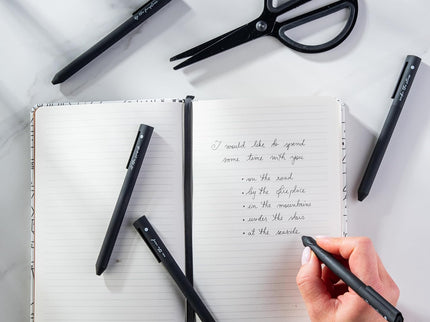 I would like to spend
some time with you
• on the road
• by the fireplace
• in the mountains
• under the stars
• at the seaside